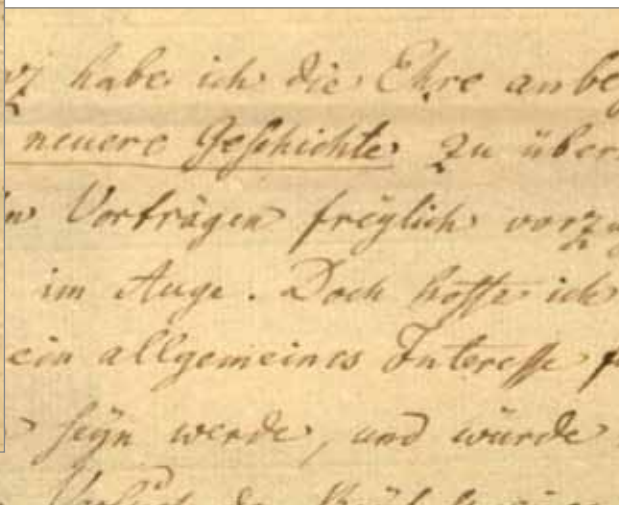 habe ich die Ehre anbe
neuere Geschichte zu über
Vorträgen freylich vorzu
im Auge. Doch hoffe ich
ein allgemeines Interesse
seyn werde, und würde